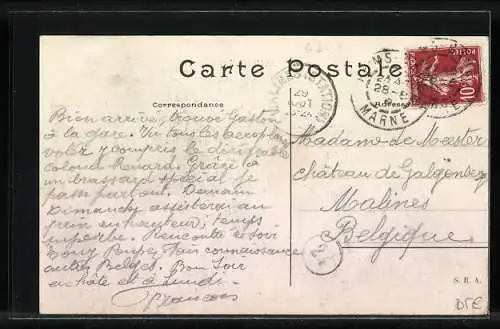 Carte Postale
Correspondance
Adresse
Bien arrivé, trouvé Gaston
à la gare. Vu tous les aeroplans
voler y compris le dirigeable
Colonel Renard. Grâce à
un brassard spécial je
passe partout. Demain
Dimanche assisterai au
prix en hauteur; temps
superbe. Rencontré ce soir
fait connaissance
autres Belges. Bon soir
en hâte et à Lundi.
François
Madame de Meester
château de Galgenberg
Malines
Belgique
MARNE
POSTES
10
29
AOUT
28
S.R.A.
D5E